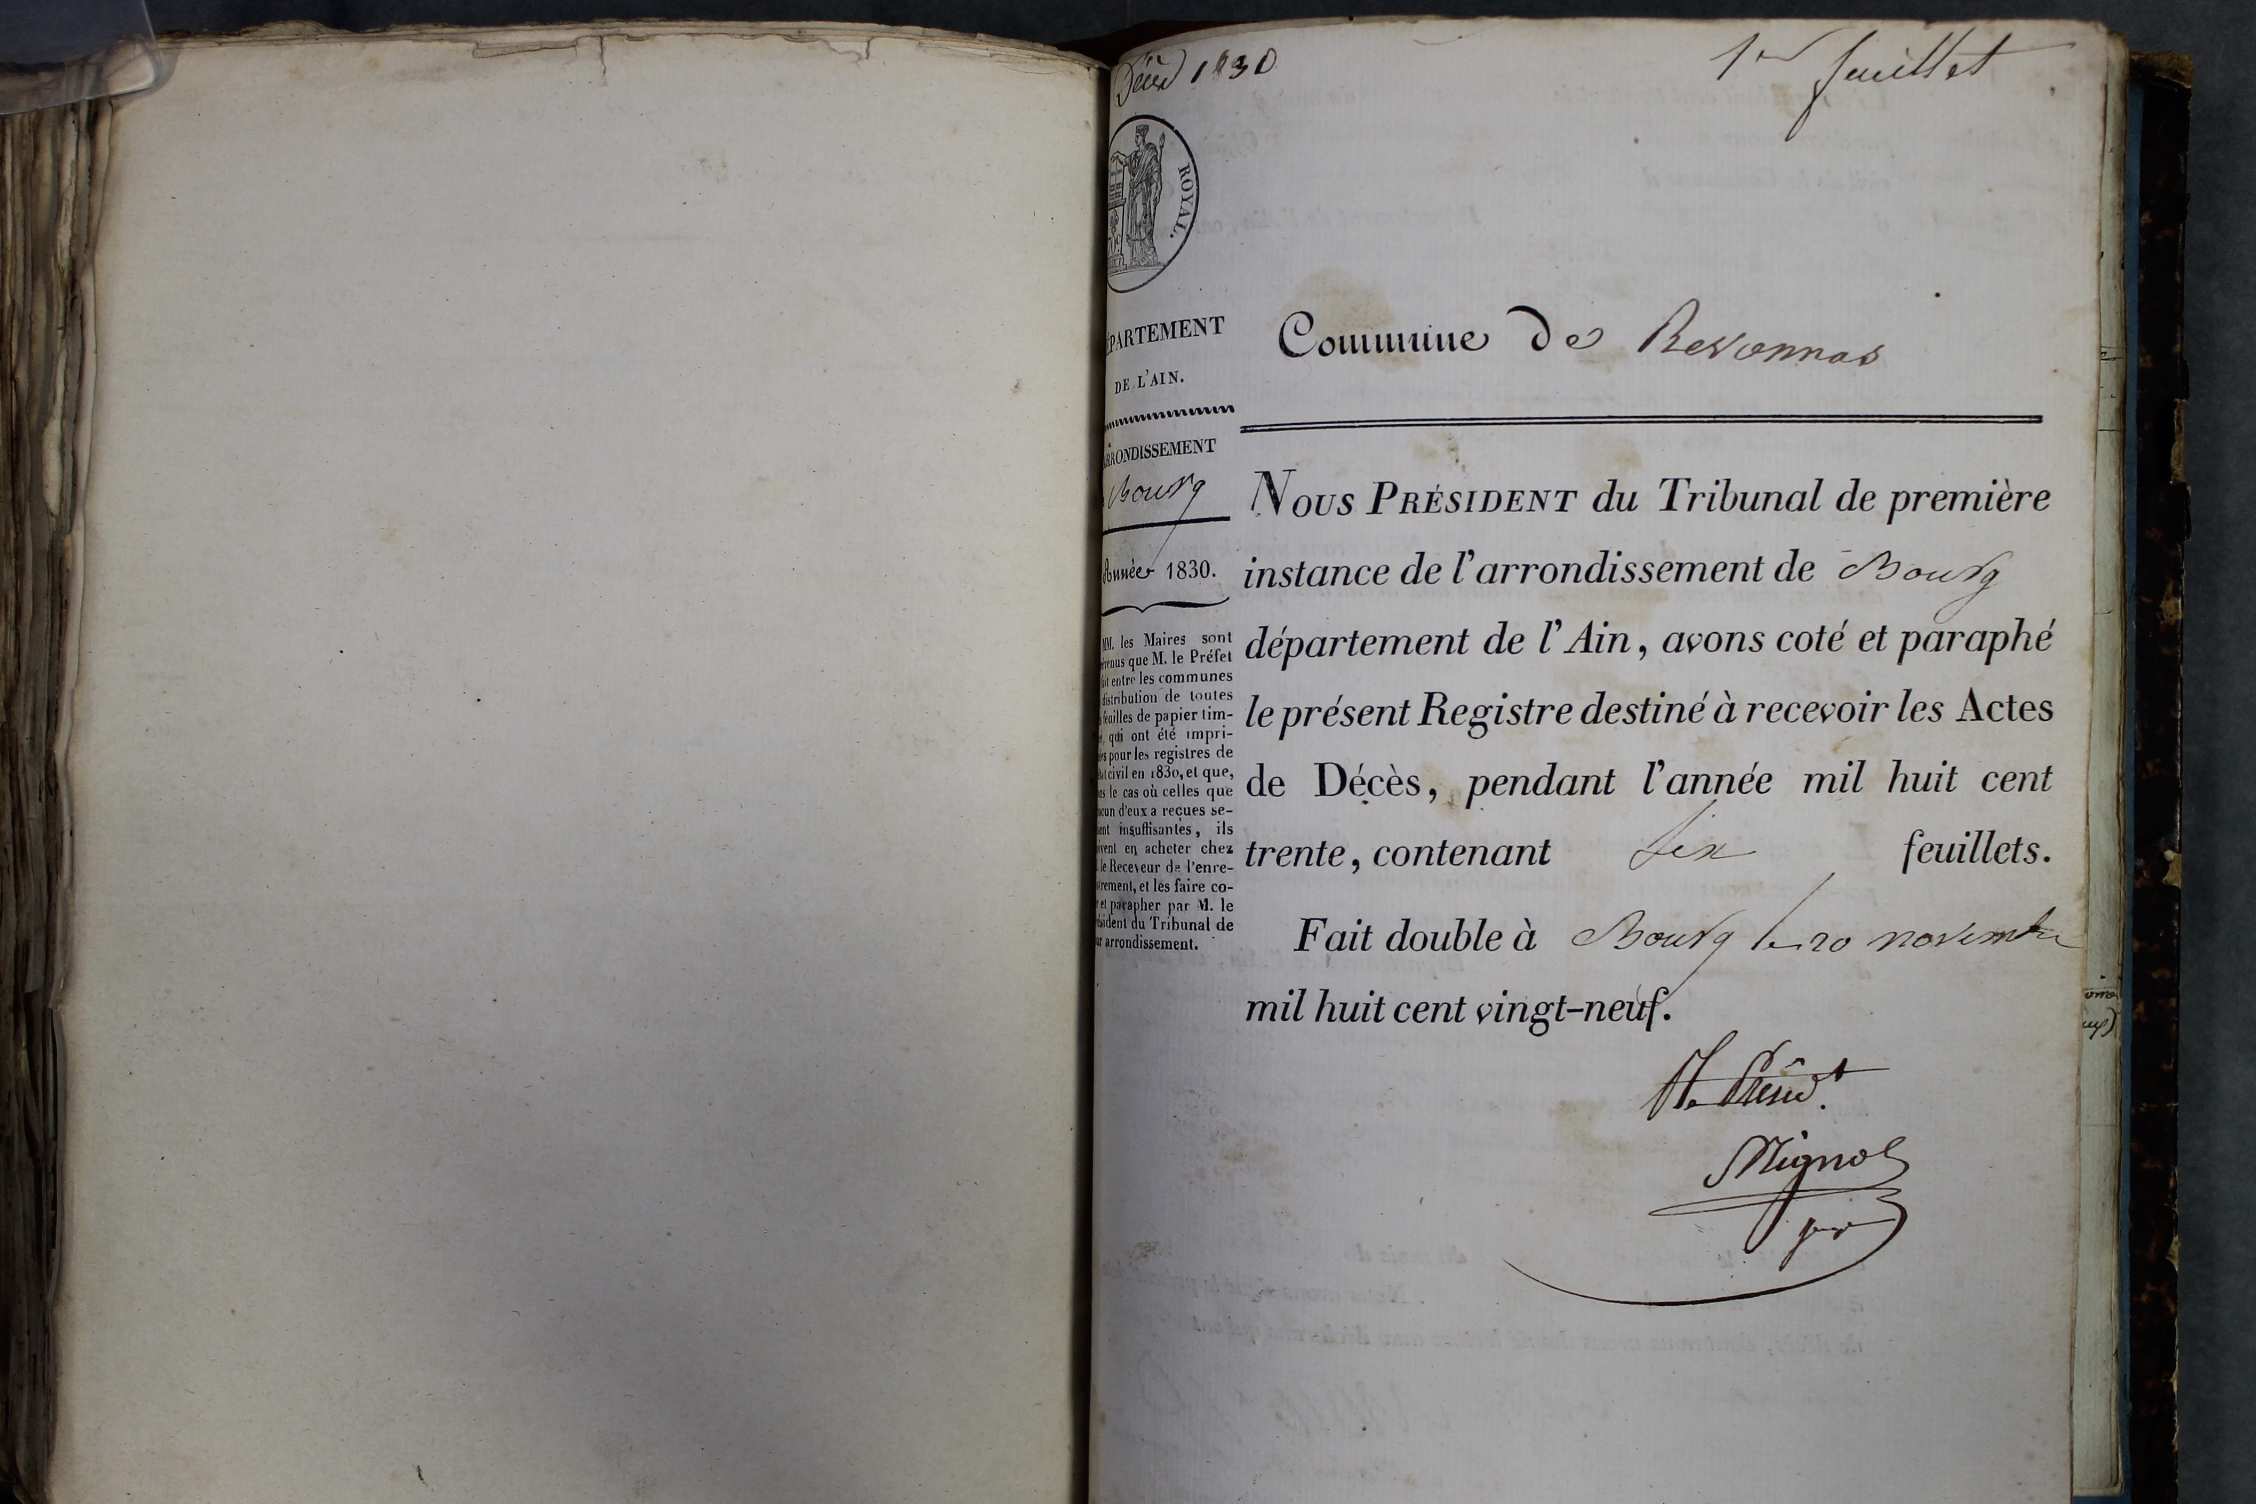 Décès 1830
1er feuillet
ROYAL.
DÉPARTEMENT
DE L'AIN.
ARRONDISSEMENT
Bourg
Année 1830.
MM. les Maires sont
prévenus que M. le Préfet
fait entre les communes
distribution de toutes
feuilles de papier tim-
qui ont été impri-
pour les registres de
civil en 1830, et que,
le cas où celles que
chacun d'eux a reçues se-
insuffisantes, ils
en acheter chez
le Receveur de l'enre-
et les faire co-
et parapher par M. le
Président du Tribunal de
arrondissement.
Commune de Revonnas
NOUS PRÉSIDENT du Tribunal de première
instance de l'arrondissement de Bourg
département de l'Ain, avons coté et paraphé
le présent Registre destiné à recevoir les Actes
de Décès, pendant l'année mil huit cent
trente, contenant six feuillets.
Fait double à Bourg le 20 novembre
mil huit cent vingt-neuf.
Le Présid.t